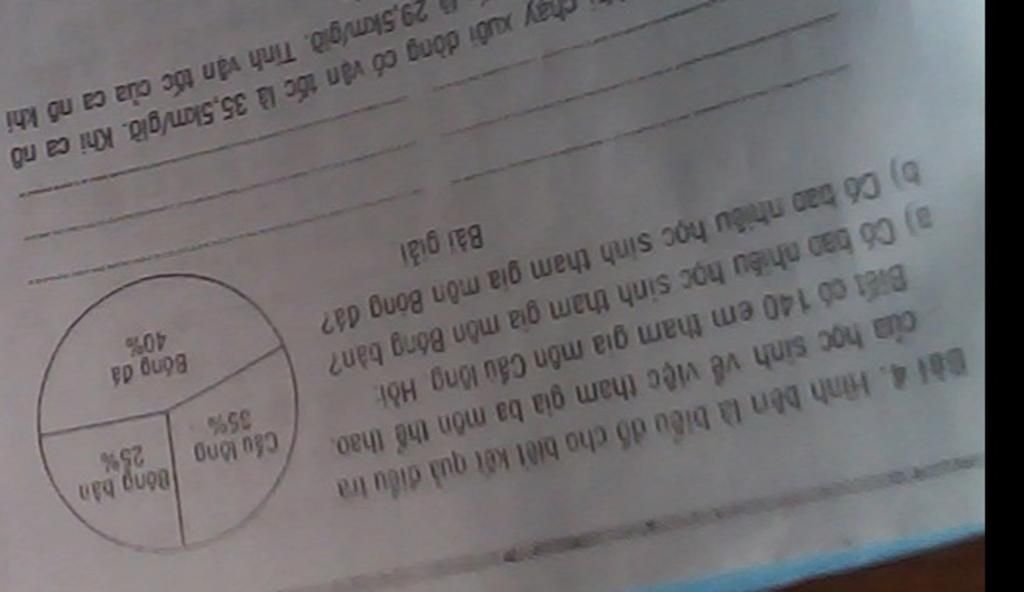 Bài 4. Hình bên là biểu đồ cho biết kết quả điều tra
của học sinh về việc tham gia ba môn thể thao.
Biết có 140 em tham gia môn Cầu lông. Hỏi:
a) Có bao nhiêu học sinh tham gia môn Bóng bàn?
b) Có bao nhiêu học sinh tham gia môn Bóng đá?
Bóng bàn
25%
Cầu lông
35%
Bóng đá
40%
Bài giải
chạy xuôi dòng có vận tốc là 35,5km/giờ. Khi ca nô
là 29,5km/giờ. Tính vận tốc của ca nô khi